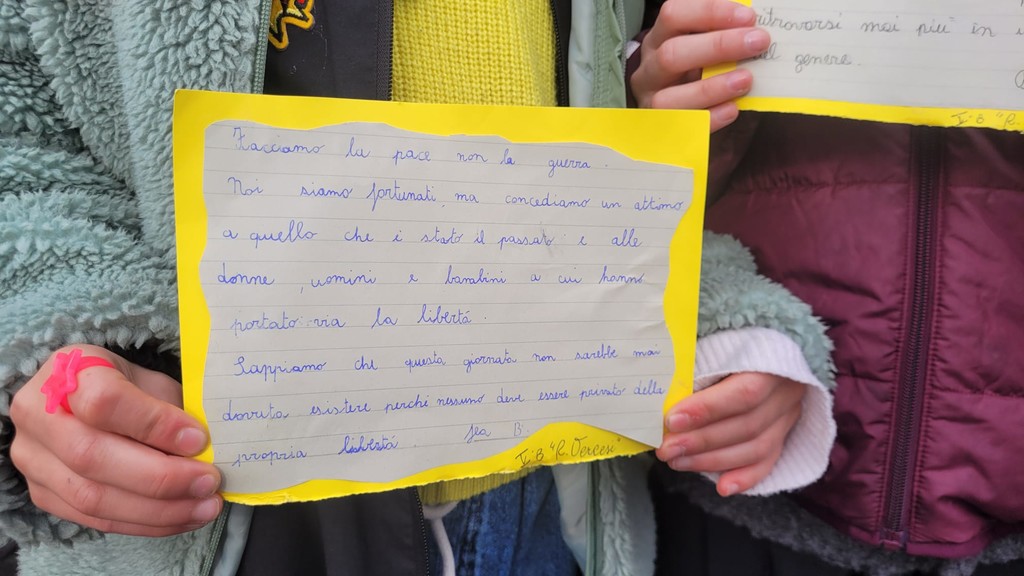 Facciamo la pace non la guerra.
Noi siamo fortunati, ma concediamo un attimo
a quello che è stato il passato e alle
donne, uomini e bambini a cui hanno
portato via la libertá.
Sappiamo che questa giornata non sarebbe mai
dovuta esistere perché nessuno deve essere privato della
propria libertá. B.
V B "R. Vercesi"
ritrovarsi mai più in
genere.
V B "R.